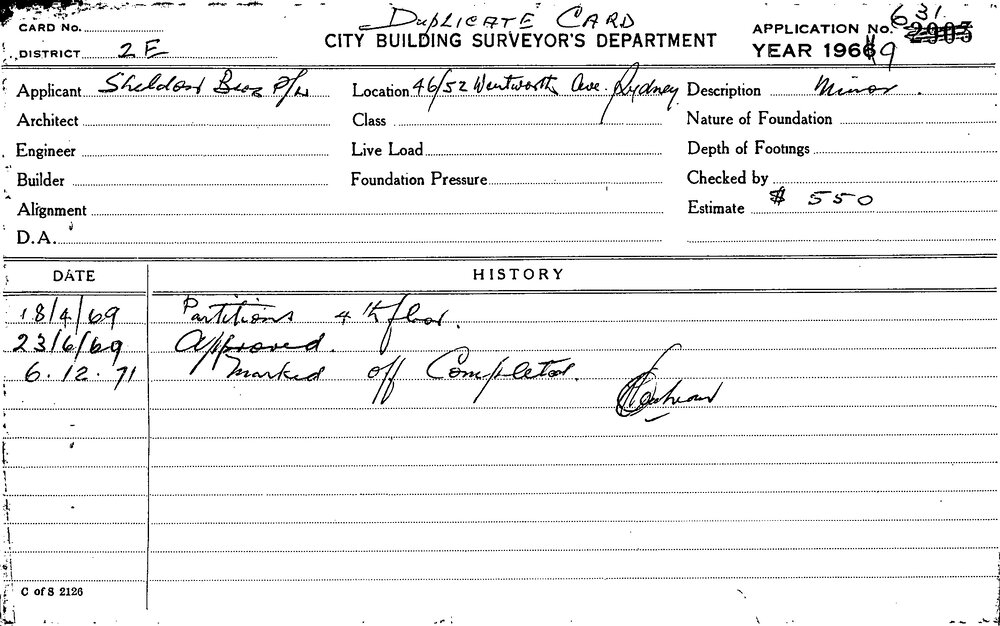 DUPLICATE CARD
CARD No. CITY BUILDING SURVEYOR'S DEPARTMENT APPLICATION No. 631 2903
DISTRICT 2E YEAR 19669
Applicant Sheldon Bros P/L Location 46/52 Wentworth Ave. Sydney Description Minor.
Architect Class Nature of Foundation
Engineer Live Load Depth of Footings
Builder Foundation Pressure Checked by
Alignment Estimate $ 550
D.A.
DATE HISTORY
18/4/69 Partitions 4th floor.
23/6/69 Approved.
6.12.71 Marked off Completed.
C of S 2126